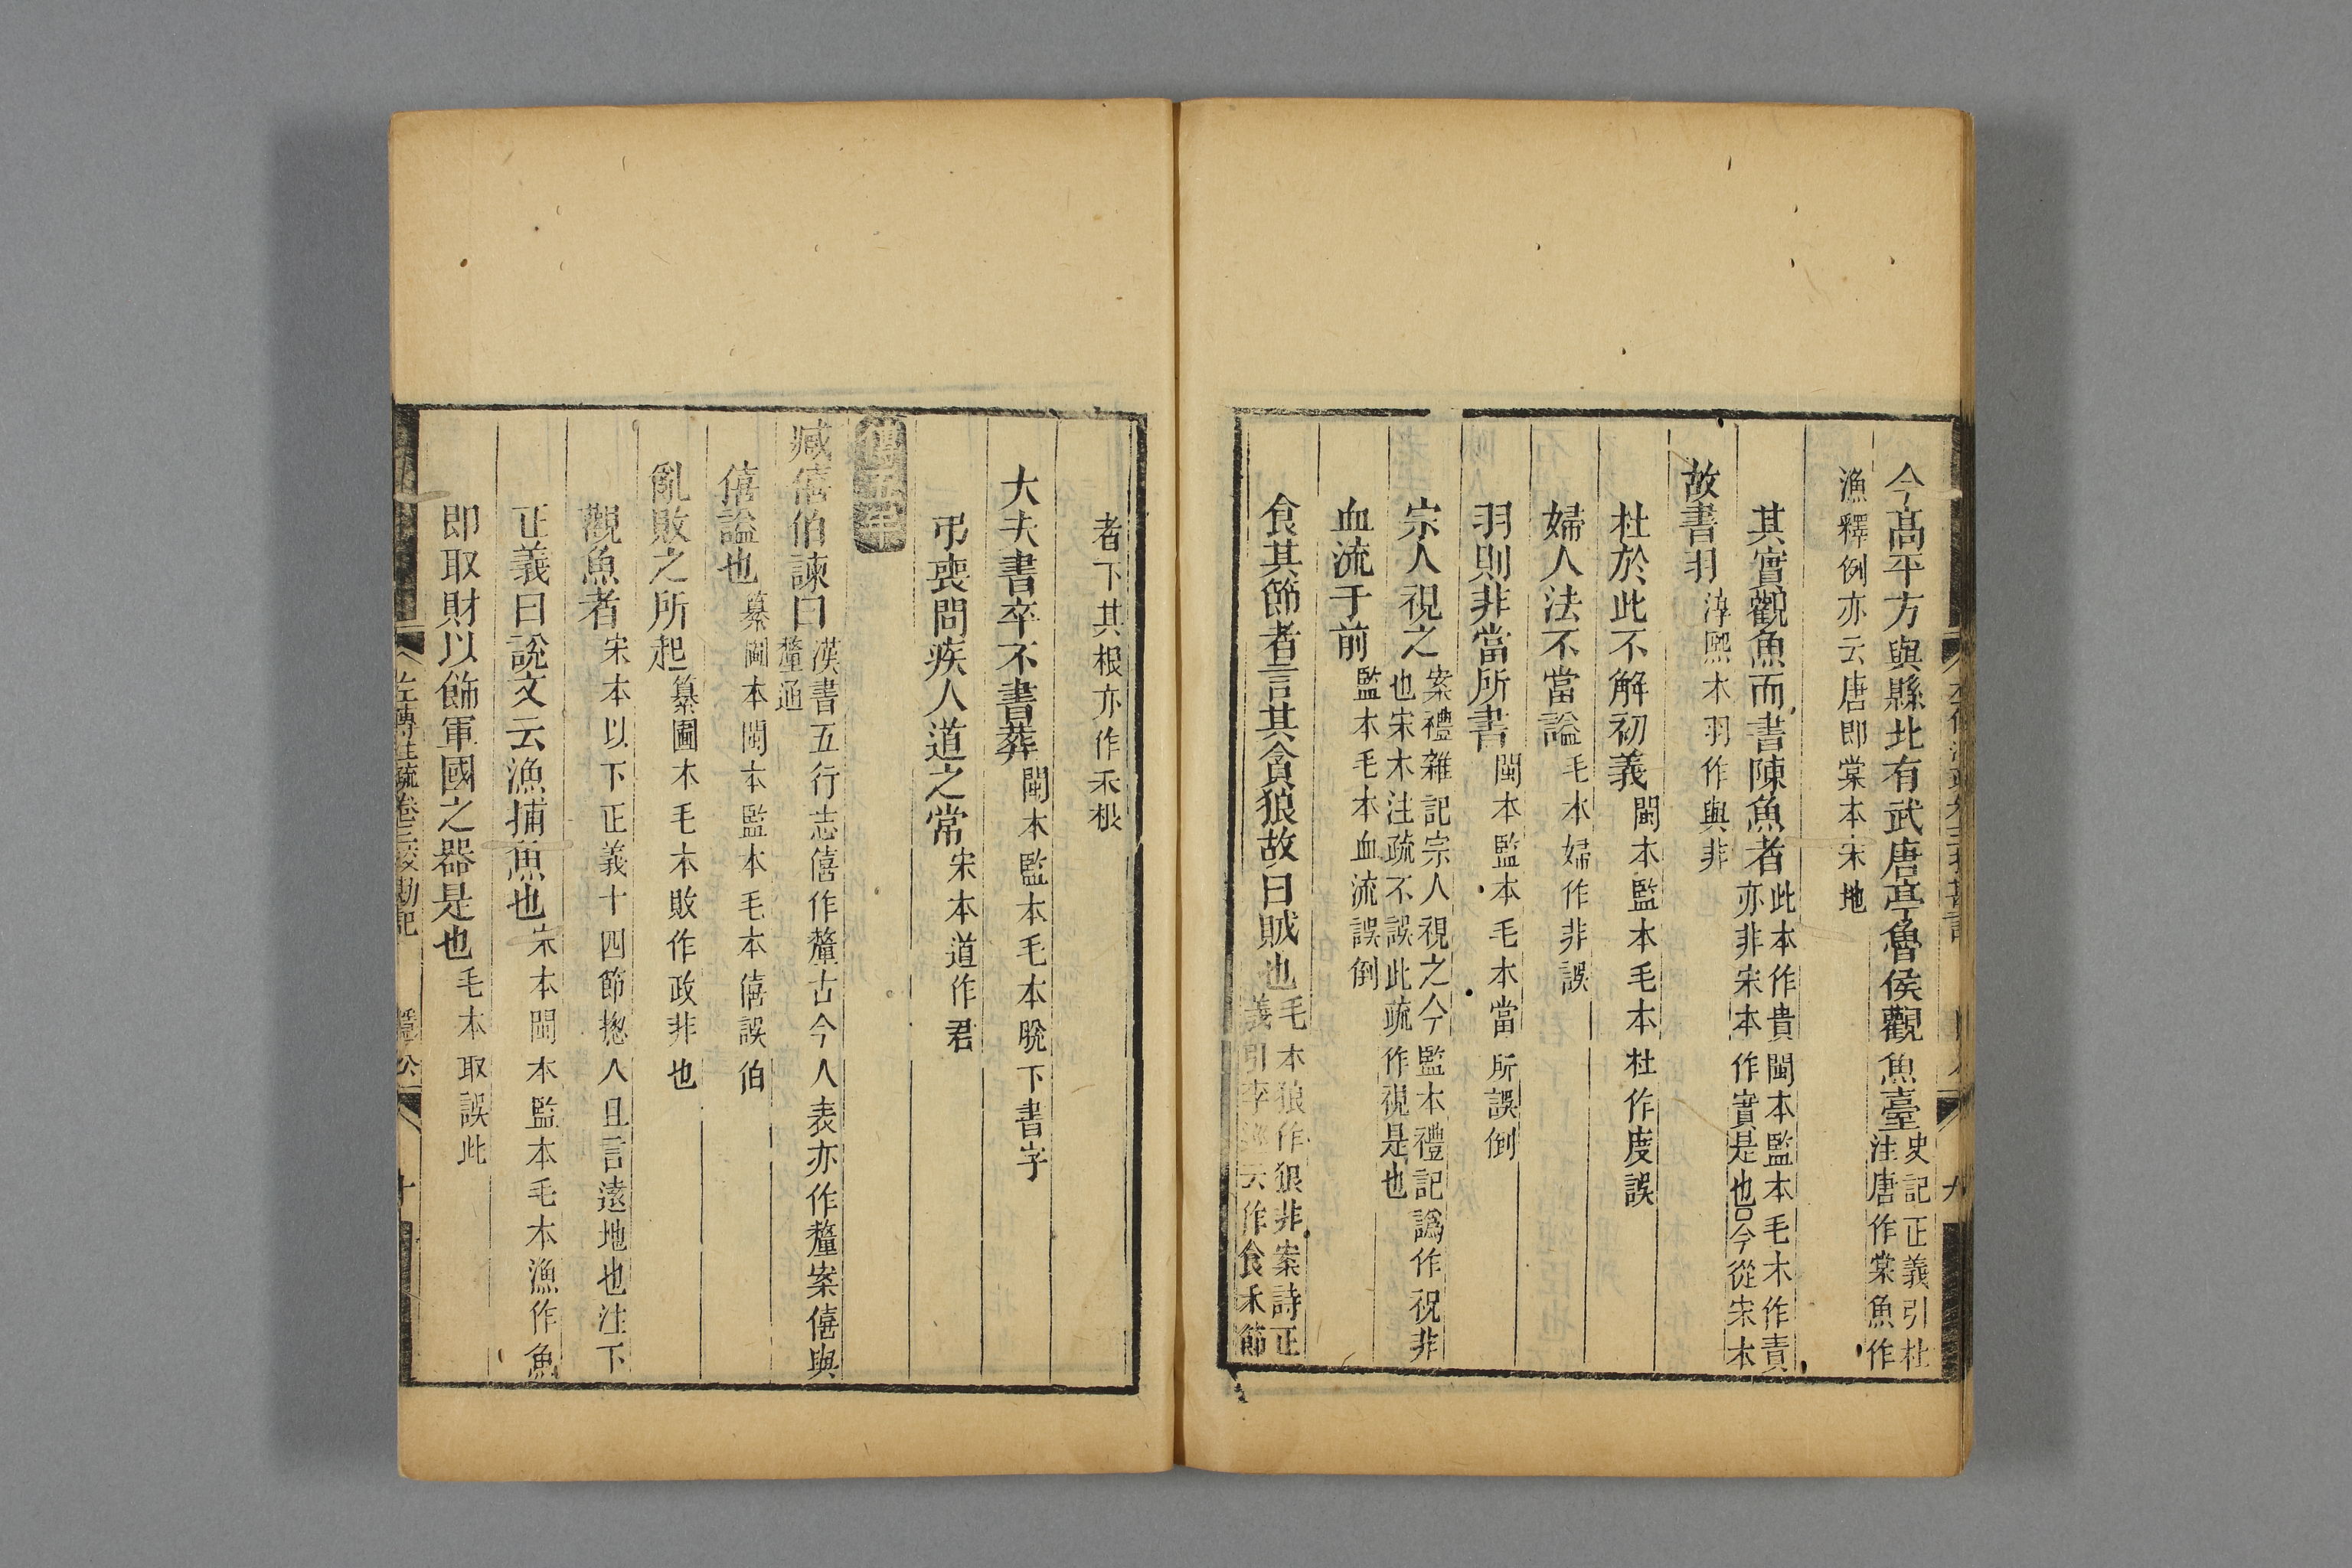 今高平方與縣北有武唐亭魯侯觀魚臺史記正義引杜注唐作棠魚作
漁釋例亦云唐即棠本宋地
其實觀魚而書陳魚者此本作貴閩本監本毛本作責亦非宋本作實是也今從宋本
故書羽淳熙本羽作與非
杜於此不解初義閩本監本毛本杜作度誤
婦人法不當謚毛本婦作非誤
羽則非當所書閩本監本毛本當所誤倒
宗人視之案禮雜記宗人視之今監本禮記譌作祝非也宋本注疏不誤此疏作視是也
血流于前監本毛本血流誤倒
食其節者言其貪狼故曰賊也毛本狼作狠非案詩正義引李巡云作食禾節
者下其根亦作禾根
大夫書卒不書葬閩本監本毛本脫下書字
弔喪問疾人道之常宋本道作君
傳五年
臧僖伯諫曰漢書五行志僖作釐古今人表亦作釐案僖與釐通
僖謚也纂圖本閩本監本毛本僖誤伯
亂敗之所起纂圖本毛本敗作政非也
觀魚者宋本以下正義十四節摠入且言遠地也注下
正義曰說文云漁捕魚也宋本閩本監本毛本漁作魚
即取財以飾軍國之器是也毛本取誤此
左傳注疏卷三校勘記 隱公 十